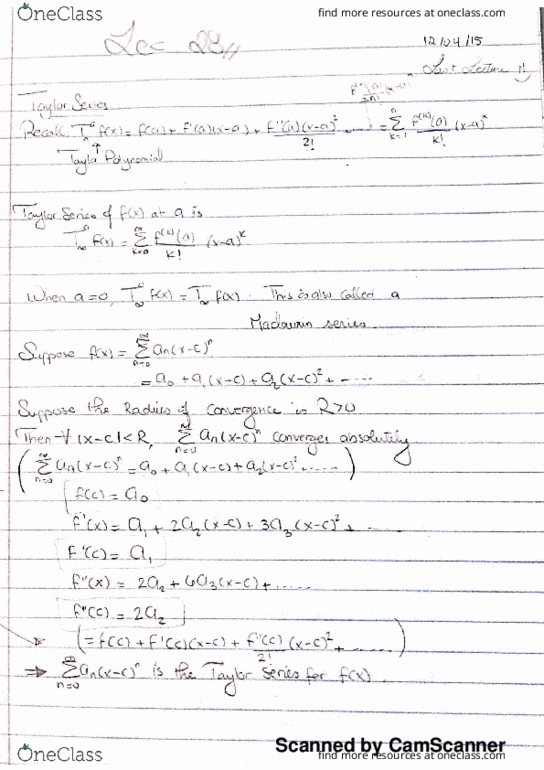 OneClass
find more resources at oneclass.com
Lec 28
12/04/15
Last Lecture !!
Taylor Series
Recall: Tₙᵃ f(x) = f(a) + f'(a)(x-a) + f''(a)(x-a)²/2! + ...... = Σₖ₌₁ⁿ f⁽ᵏ⁾(a)/k! (x-a)ᵏ
Taylor Polynomial
Taylor Series of f(x) at a is
T∞ᵃ f(x) = Σₖ₌₀^∞ f⁽ᵏ⁾(a)/k! (x-a)ᵏ
When a=0, T∞ᵒ f(x) = T∞ f(x). This is also called a
Maclaurin series.
Suppose f(x) = Σₙ₌₀^∞ aₙ(x-c)ⁿ
= a₀ + a₁(x-c) + a₂(x-c)² + ......
Suppose the Radius of Convergence is R>0
Then ∀ |x-c|<R, Σₙ₌₀^∞ aₙ(x-c)ⁿ converges absolutely
(Σₙ₌₀^∞ aₙ(x-c)ⁿ = a₀ + a₁(x-c) + a₂(x-c)² ......)
f(c) = a₀
f'(x) = a₁ + 2a₂(x-c) + 3a₃(x-c)² + ......
f'(c) = a₁
f''(x) = 2a₂ + 6a₃(x-c) + ......
f''(c) = 2a₂
(= f(c) + f'(c)(x-c) + f''(c)/2! (x-c)² + ......)
⇒ Σₙ₌₀^∞ aₙ(x-c)ⁿ is the Taylor Series for f(x)
Scanned by CamScanner
OneClass
find more resources at oneclass.com